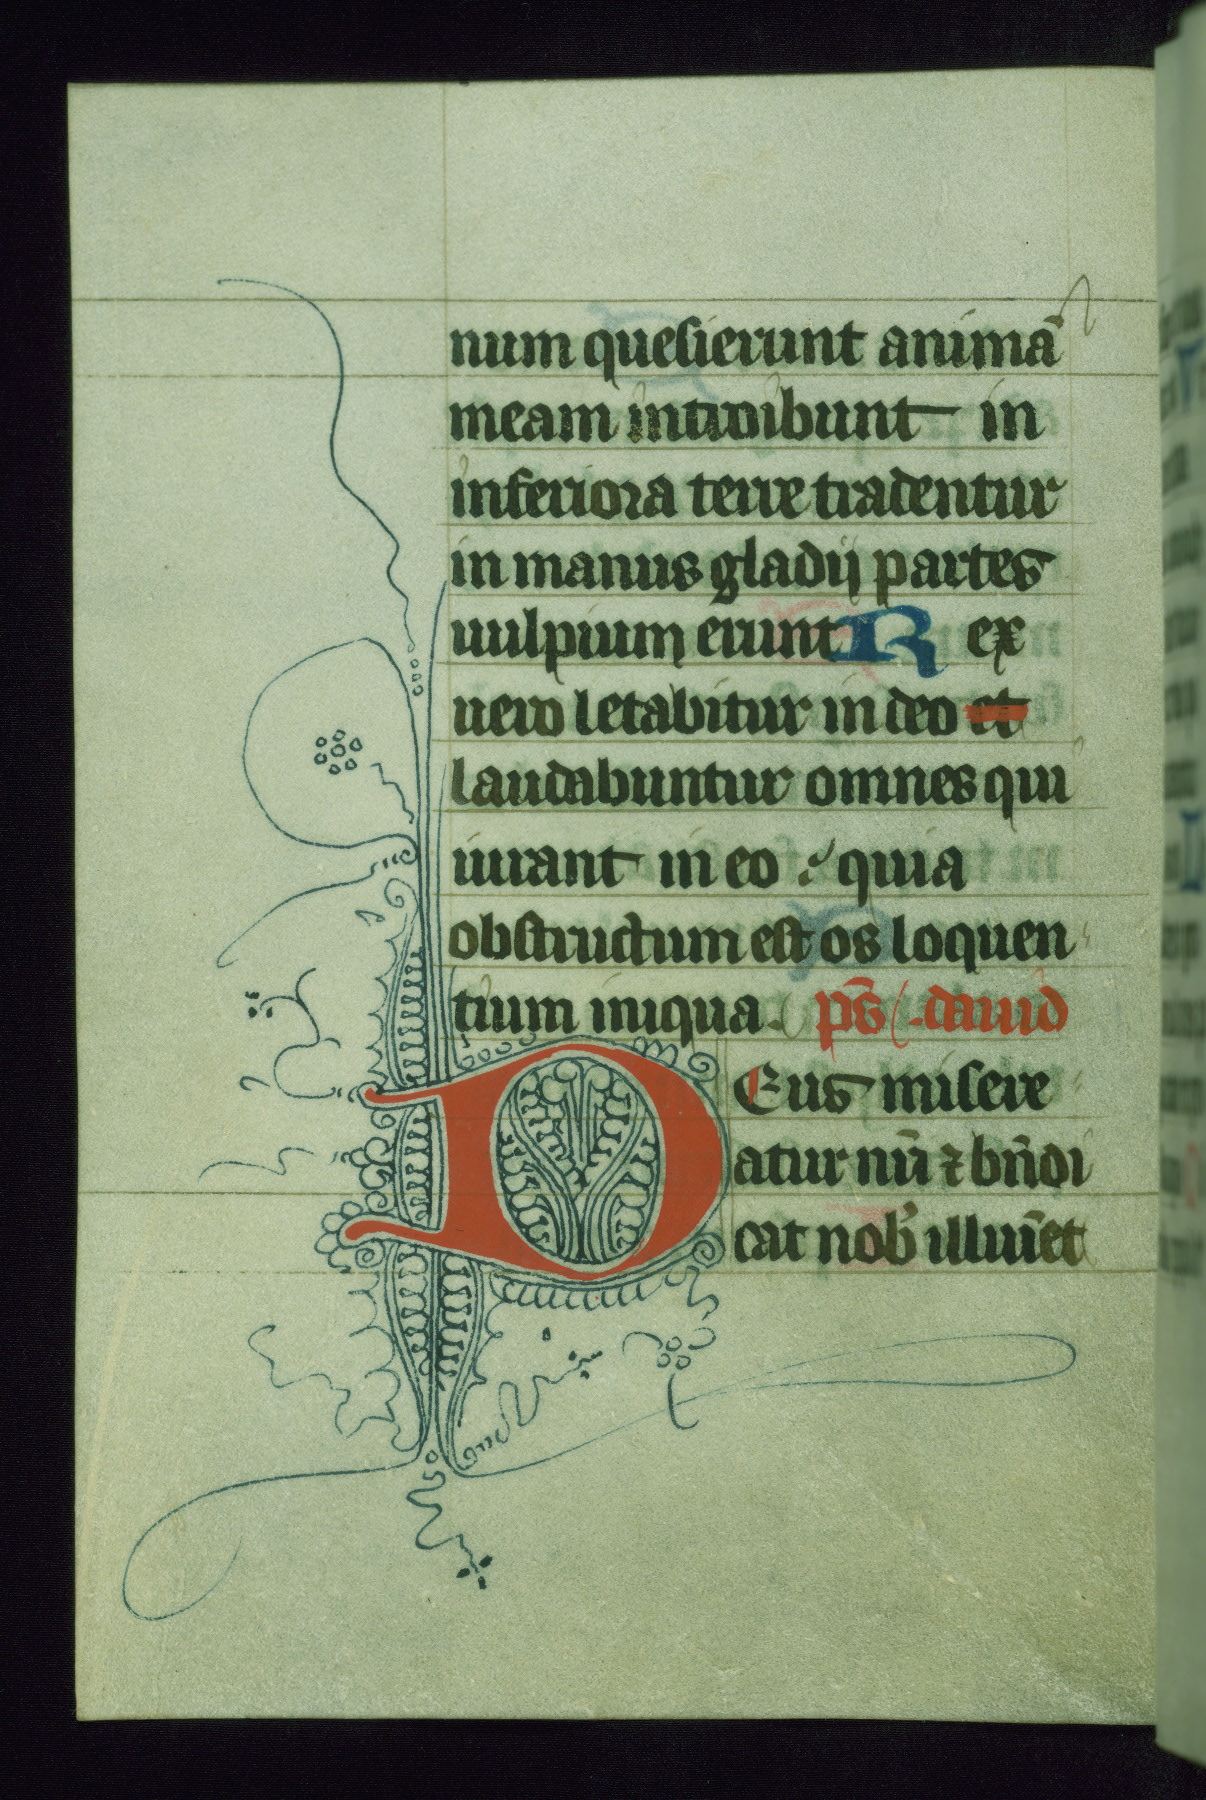 num quesierunt animā
meam introibunt in
inferiora terre tradentur
in manus gladij partes
uulpium erunt R ex
uero letabitur in deo et
laudabuntur omnes qui
iurant in eo : quia
obstructum est os loquen
tium iniqua. ps̄ . dauid
D Eus misere
atur nr̄i ⁊ bn̄di
cat nob' illuīet